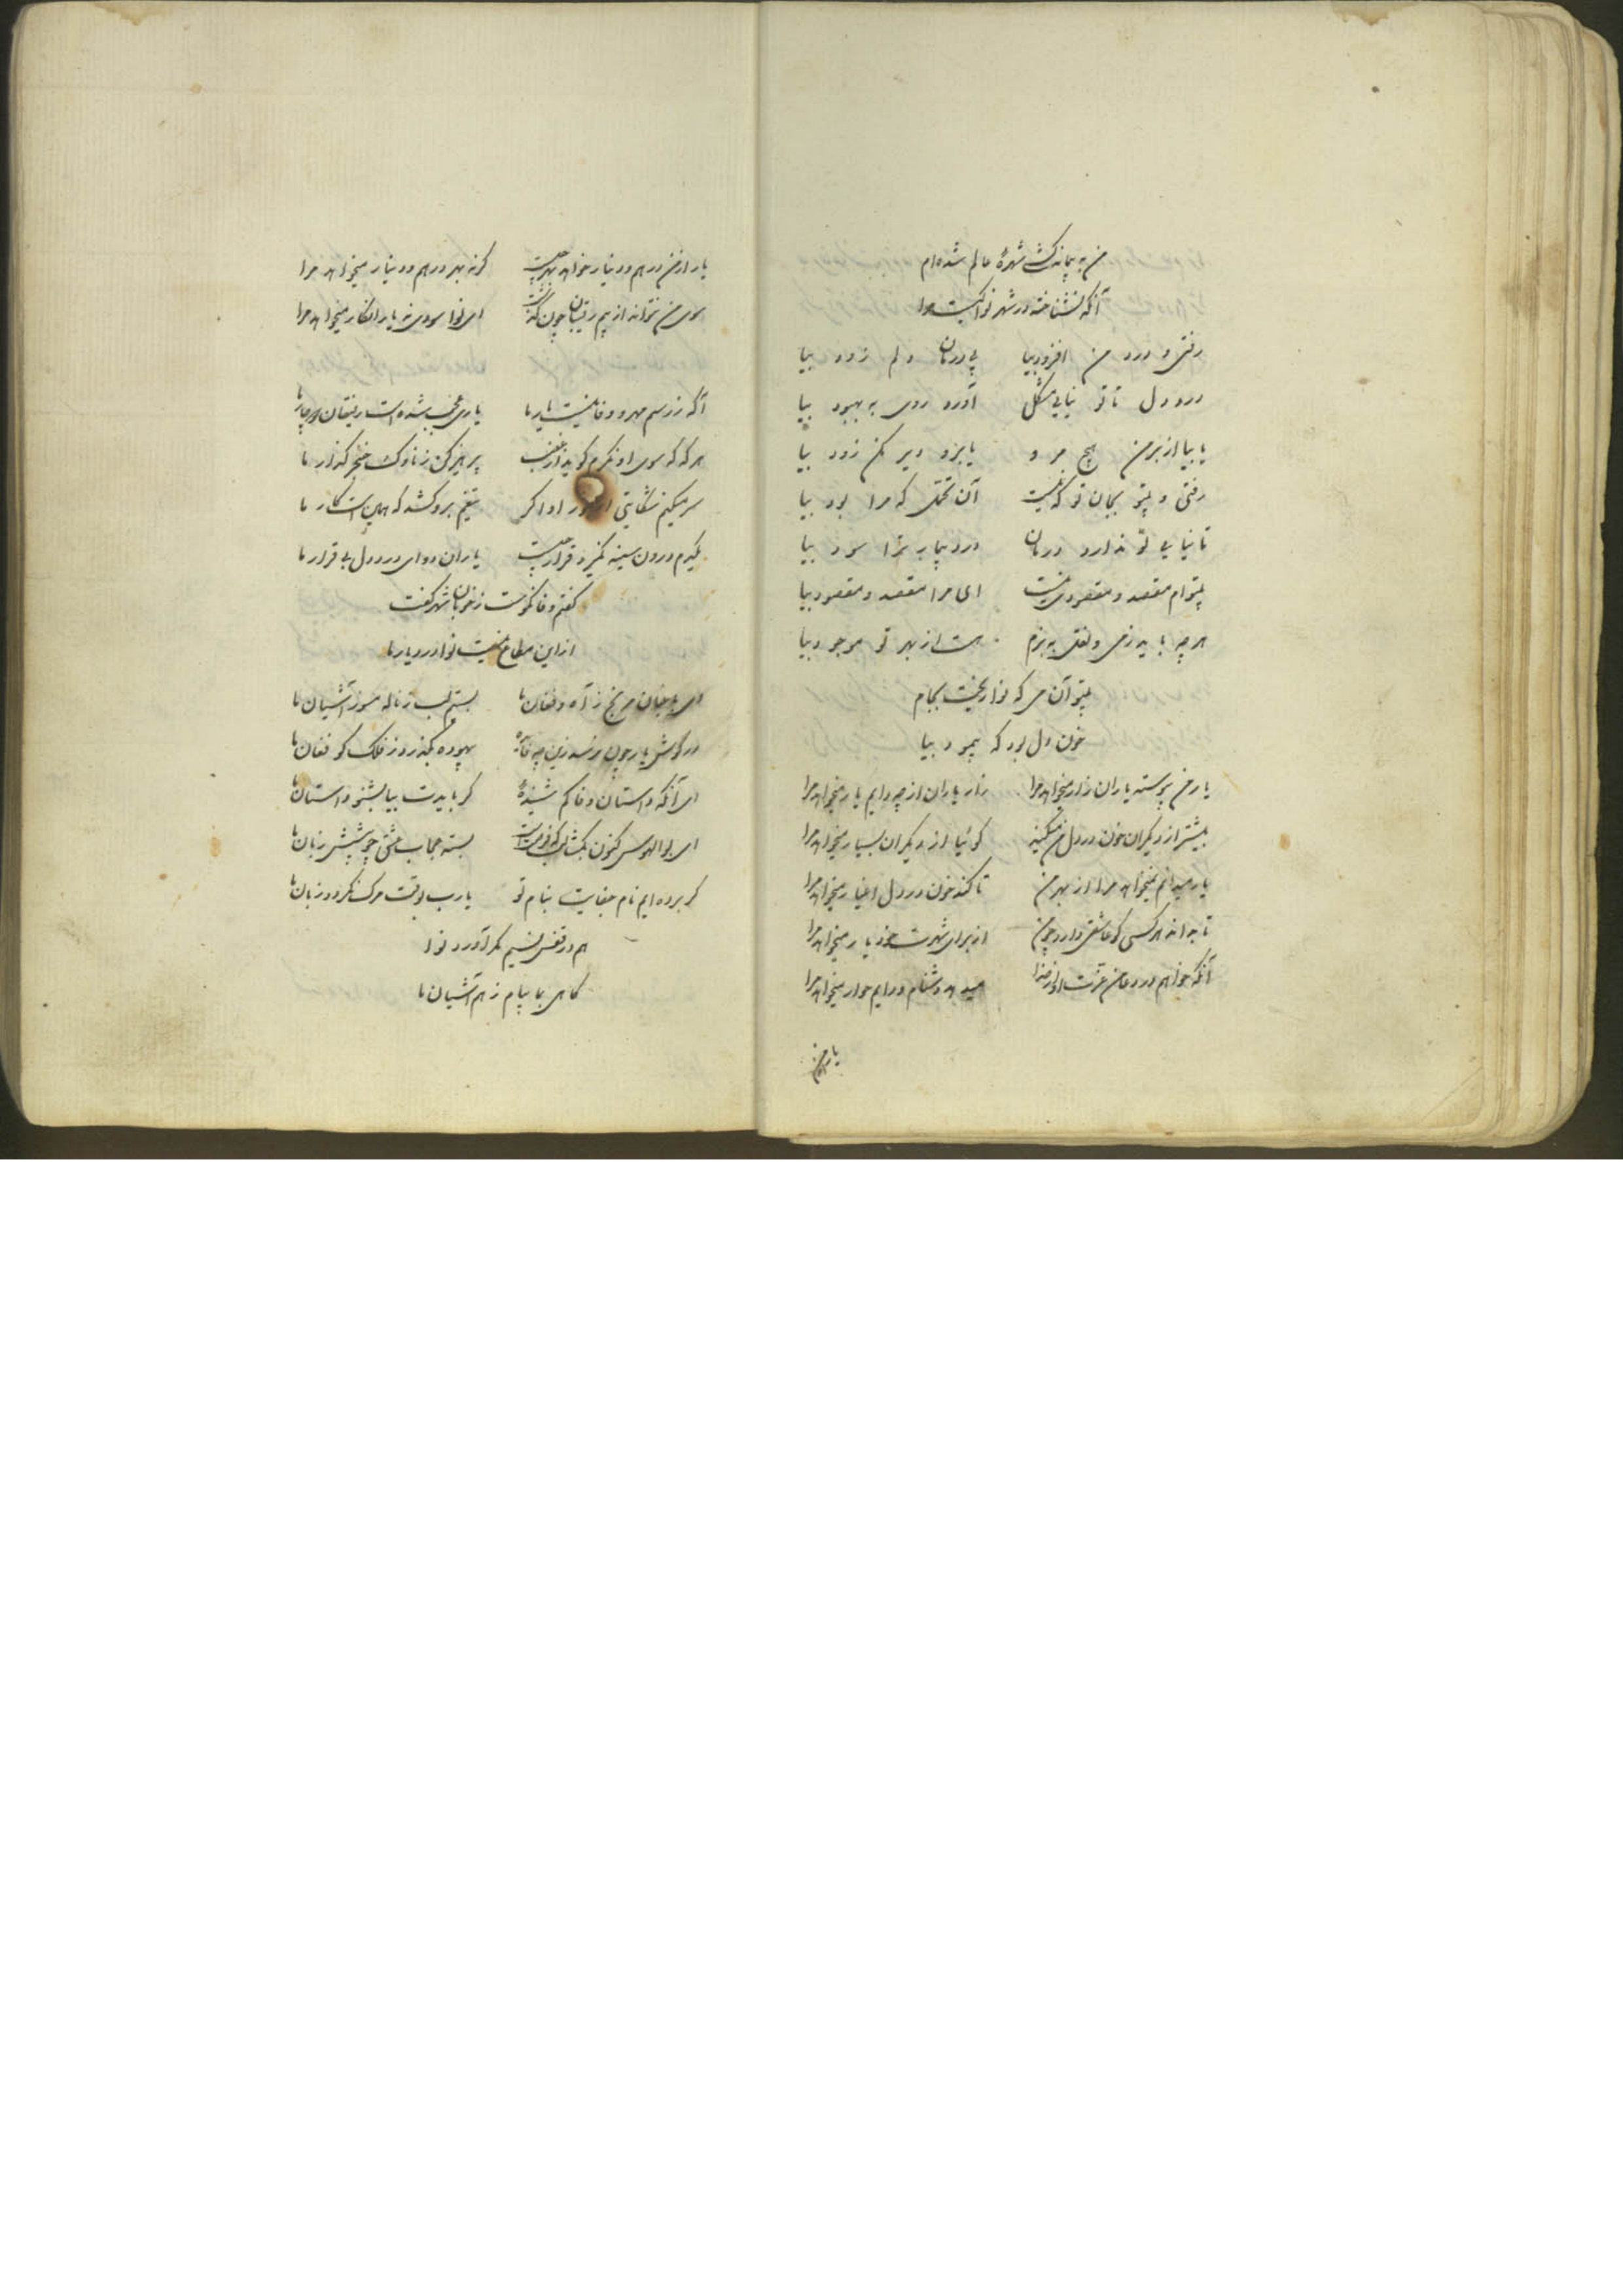 من به پیمانه کشی شهرهٔ عالم شده‌ام
آنکه نشناخته در شهر نوا کیست مرا
رفتی و درد من افزود بیا پی درمان دلم زود بیا
درد دل تا تو نیایی مشکل آورد روی به بهبود بیا
یا بیا از بر من هیچ مرو یا برو دیر مکن زود بیا
رفتی و بیتو بجان تو که نیست آن تحمل که مرا بود بیا
تا نیایی تو ندارد درمان درد بیمار ترا سود بیا
بیتوام مقصد و مقصودی نیست ای مرا مقصد و مقصود بیا
هر چه باید ز می و نقل به بزم هست از بهر تو موجود بیا
بیتو آن می که نوا ریخت بجام
خون دل بود که پیمود بیا
یار من پیوسته یاران زار میخواهد مرا زار یاران از چه دایم یار میخواهد مرا
بیشتر از دیگران خون در دل من میکند گوئیا از دیگران بسیار میخواهد مرا
یار میدانم نمیخواهد مرا از بهر من تا کند خون در دل اغیار میخواهد مرا
تا بداند هر کسی کو عاشقی دارد چو من از برای شهرت خود یار میخواهد مرا
آنکه خواهم در دعا من عزت او از خدا میدهد دشنام و دایم خوار میخواهد مرا
یار از من
یار از من درهم و دینار خواهد بهر چیست گر نه بهر درهم و دینار میخواهد مرا
سوی من نتواند از بیم رقیبان چون گذشت ای نوا سودی نه یار انکار میخواهد مرا
آگه ز رسم مهر و وفا نیست یار ما یاری عجب شده است رفیقان دچار ما
هر که که سوی او نگرم گوید از غضب پرهیز کن ز ناوک خنجر گذار ما
سر میکنیم شکایتی از جور او اگر تیغم برو کشد که همین است کار ما
گیرم درون سینه نگیرد قرار چیست یاران دوای درد دل بی قرار ما
گفتم وفا نکوست ز خوبان شهر گفت
از این مطاع نیست نوا در دیار ما
ای باغبان مرنج ز آه و فغان ما بستیم لب ز ناله مسوز آشیان ما
در گوش یار چون نرسد زین چه فایده بیهوده بگذرد ز فلک گو فغان ما
ای آنکه داستان وفا کم شنیدهٔ گر بایدت بیا بشنو داستان ما
ای بوالهوس کنون بگشا لب که فرصت است بسته حجاب عشق چو پیشش زبان ما
گر برده‌ایم نام جفایت بنام تو یارب بوقت مرگ نگردد زبان ما
هم در قفس نسیم مگر آورد نوا
گاهی بما پیام ز هم آشیان ما